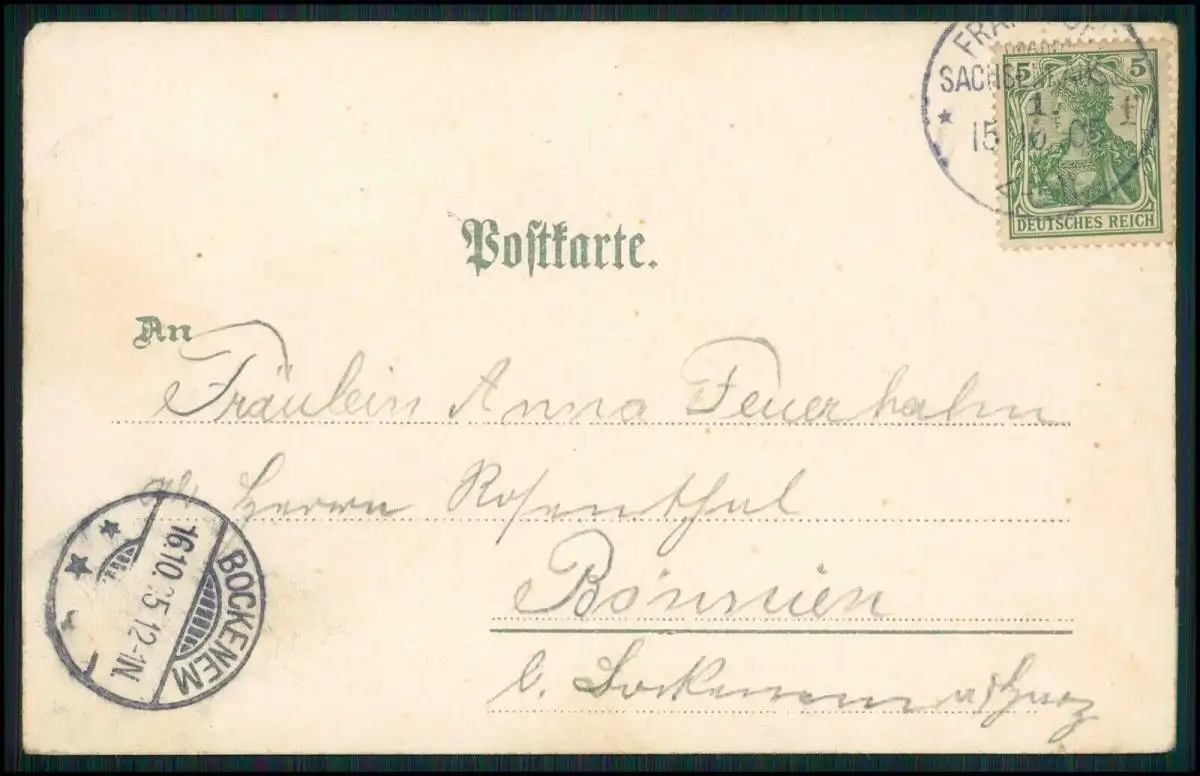 SACHSENHAUSEN
5 5
DEUTSCHES REICH
Postkarte.
An
Fräulein Anna Feuerhahn
Herrn Rosenthal
Bönnien
b. Bockenem a/Harz
BOCKENEM
16.10.05.12-1N.